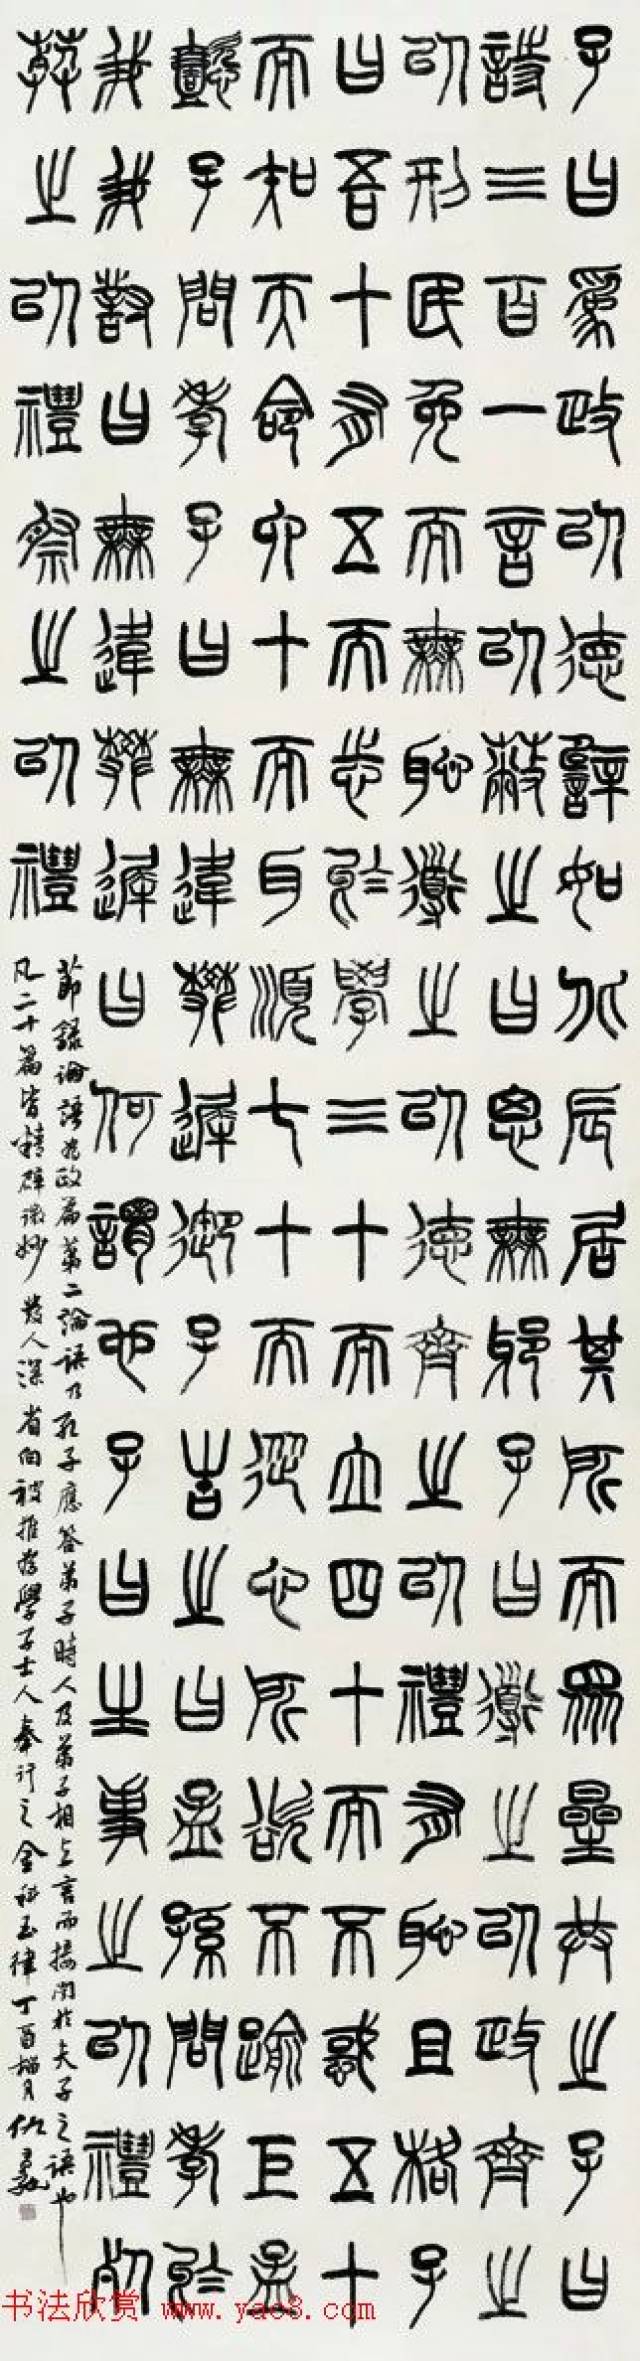 子曰為政以德譬如北辰居其所而眾星共之子曰
詩三百一言以蔽之曰思無邪子曰導之以政齊之
以刑民免而無恥導之以德齊之以禮有恥且格子
曰吾十有五而志於學三十而立四十而不惑五十
而知天命六十而耳順七十而從心所欲不踰矩孟
懿子問孝子曰無違樊遲御子告之曰孟孫問孝於
我我對曰無違樊遲曰何謂也子曰生事之以禮死
葬之以禮祭之以禮
節錄論語為政篇第二論語乃孔子應答弟子時人及弟子相與言而接聞於夫子之語也
凡二十篇皆精辟微妙發人深省向被推為學子士人奉行之金科玉律丁酉榴月仇
书法欣赏 www.yac8.com